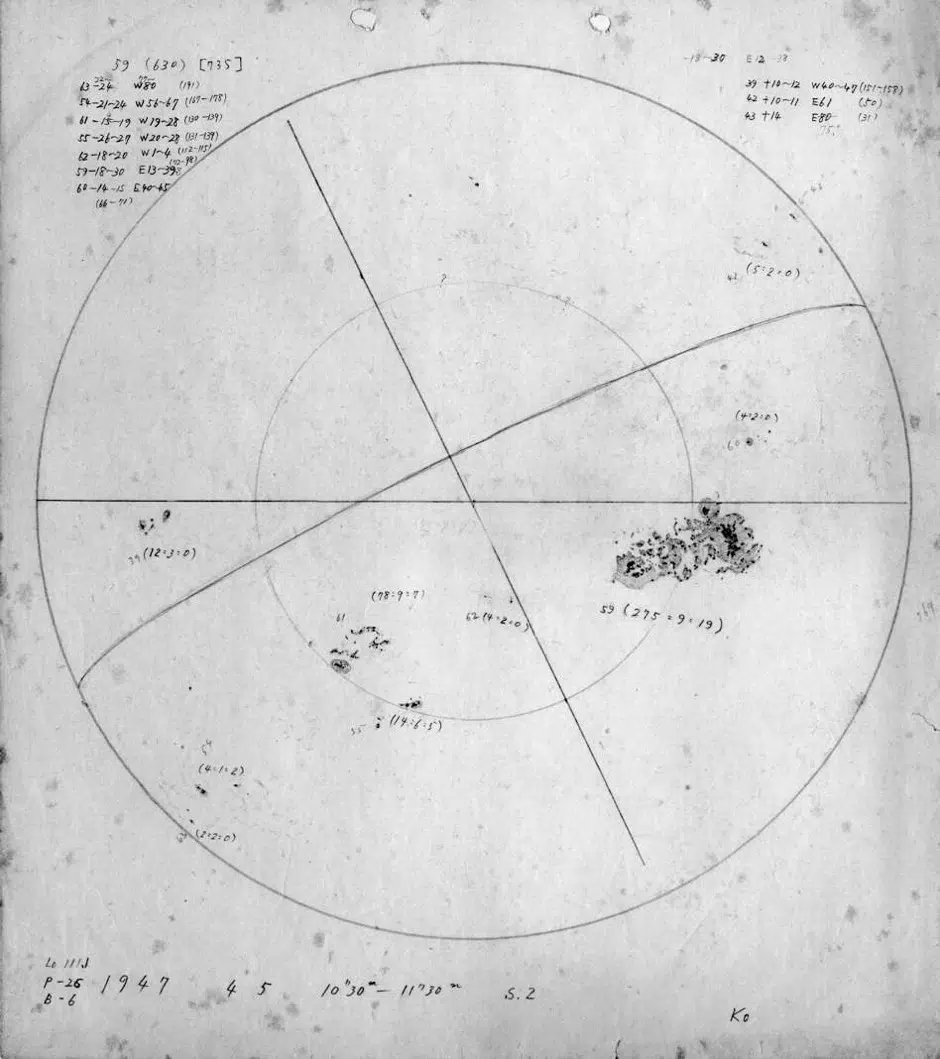 59 (630) [735]
63-24 W80 (191)
54-21~24 W56~67 (167~178)
61-15~19 W19~28 (130~139)
55-26~27 W20~28 (131~139)
62-18~20 W1~4 (112~115)
59-18~30 E13~39
60-14~15 E40~45
(66~71)
-18~30 E12
39 +10~12 W40~47 (151~158)
42 +10~11 E61 (50)
43 +14 E80 (31)
43
?
42 (5=2=0)
(4=2=0)
60
39 (12=3=0)
(78=9=7)
61
62 (4=2=0)
59 (275=9=19)
55 (14=6=5)
(4=1=2)
(2=2=0)
P-26
B-6
1947 4 5 10h30m-11h30m S.2
Ko